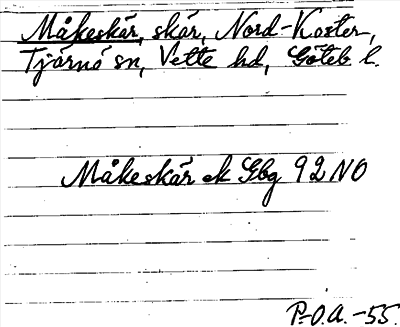 Måkeskär, skär, Nord-Koster,
Tjärnö sn, Vette hd, Göteb l.
Måkeskär ek Gbg 92 NO
P.-O.A. -55.